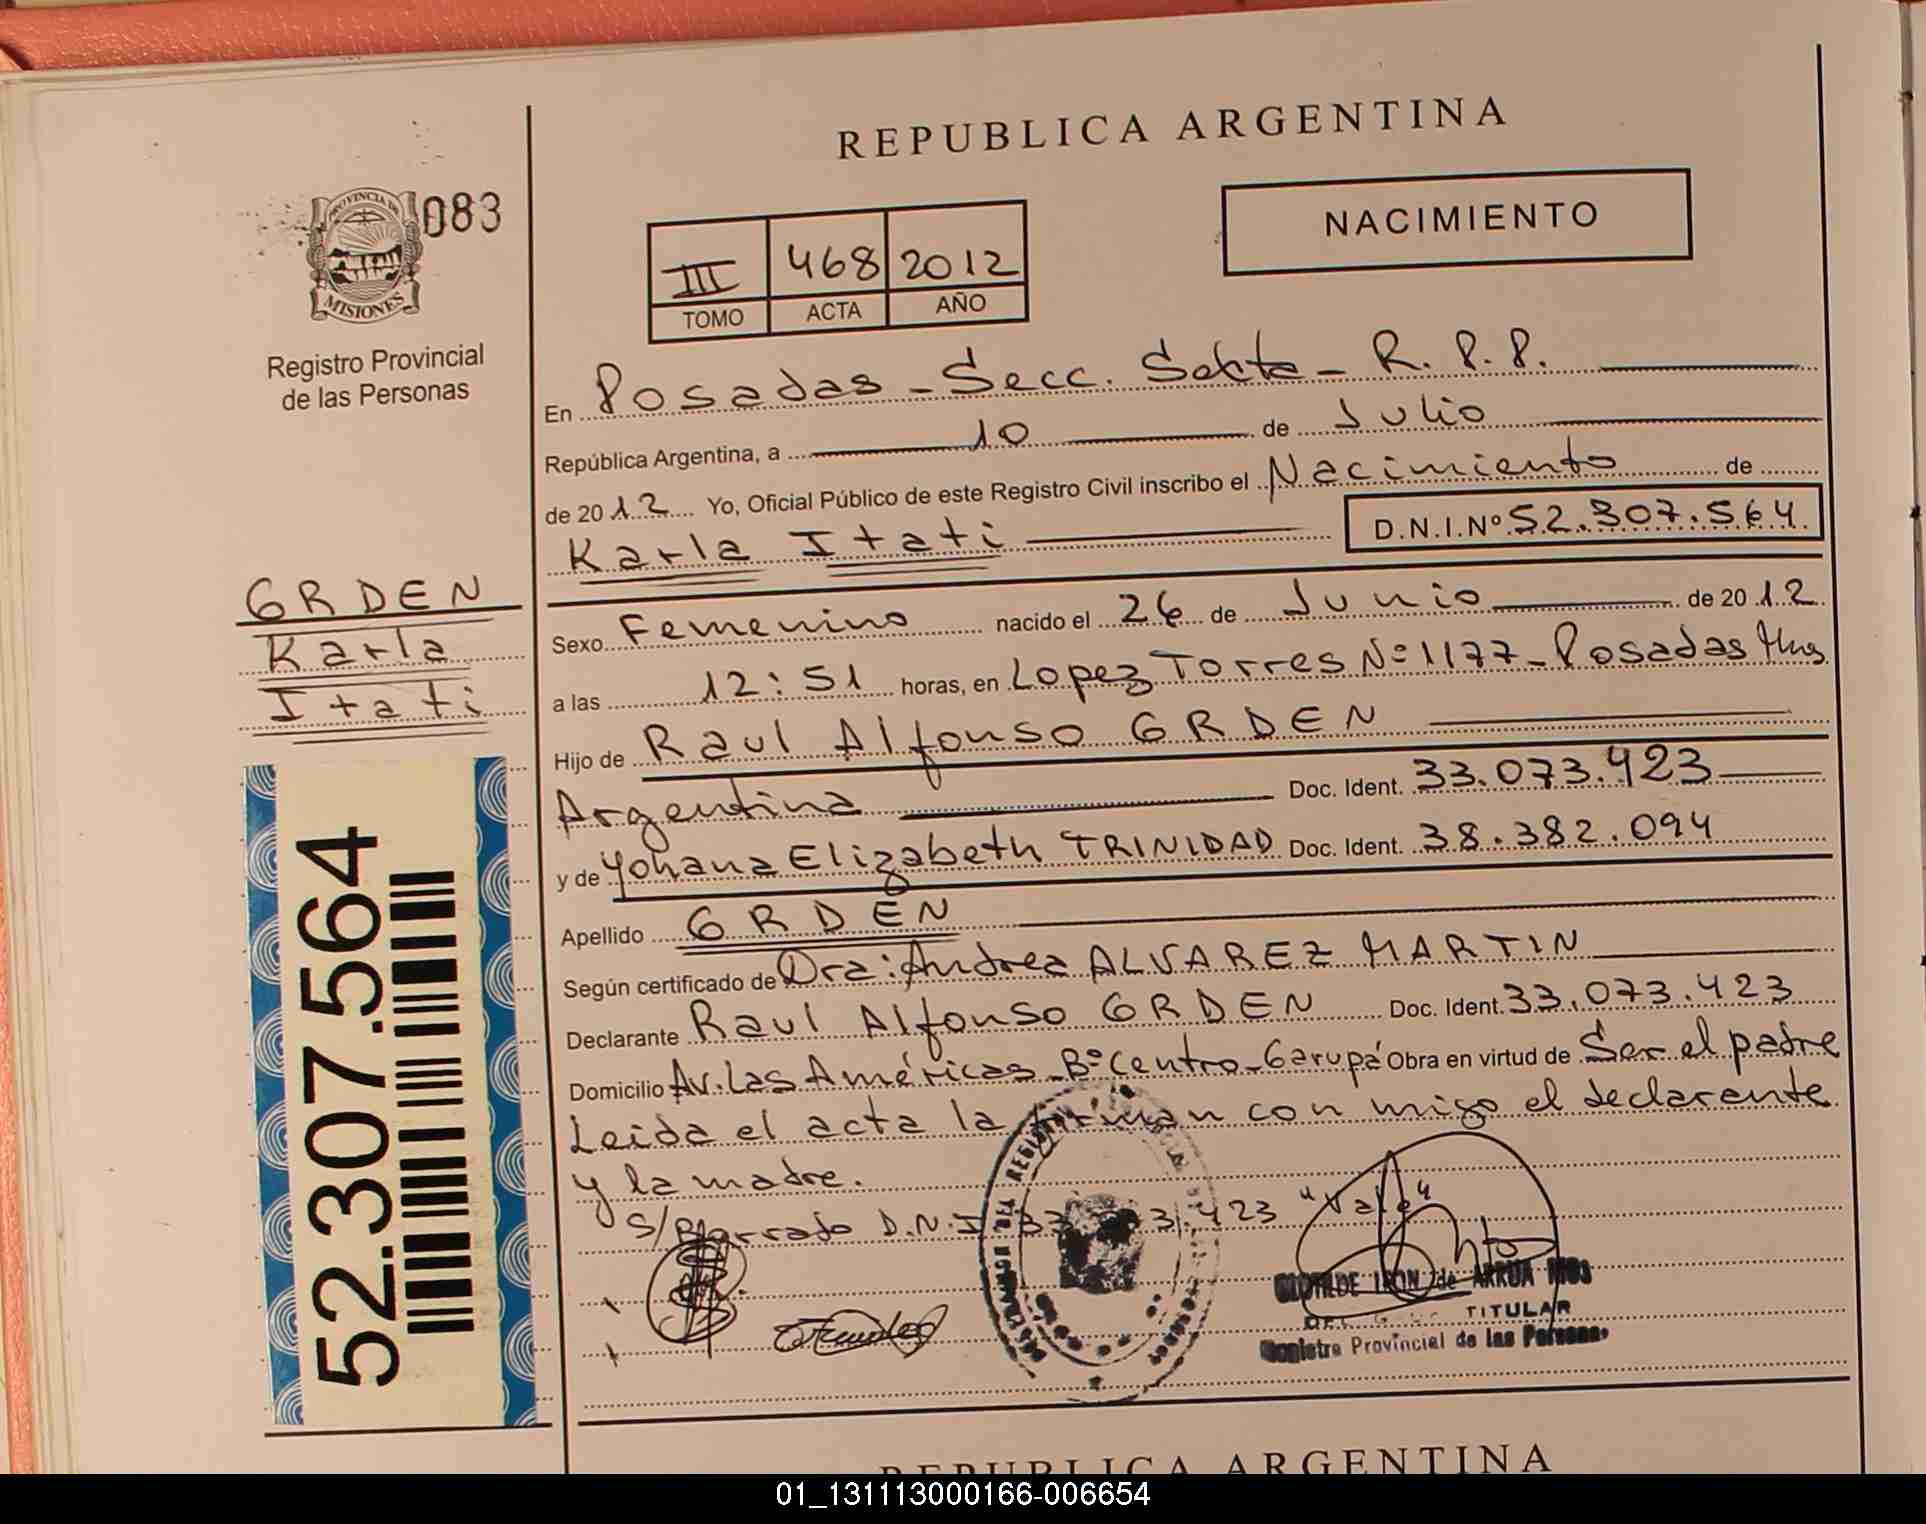 REPUBLICA ARGENTINA
PROVINCIA DE
MISIONES
083
Registro Provincial
de las Personas
NACIMIENTO
III 468 2012
TOMO ACTA AÑO
En Posadas - Secc. Sexta - R.P.P.
República Argentina, a 10 de Julio
de 2012 Yo, Oficial Público de este Registro Civil inscribo el Nacimiento de
Karla Itati D.N.I.Nº 52.307.564
GRDEN
Karla
Itati
Sexo Femenino nacido el 26 de Junio de 2012
a las 12:51 horas, en Lopez Torres Nº 1177 - Posadas Mnes
Hijo de Raul Alfonso GRDEN
Argentina Doc. Ident. 33.073.423
y de Yohana Elizabeth TRINIDAD Doc. Ident. 38.382.094
Apellido GRDEN
Según certificado de Dra: Andrea ALVAREZ MARTIN
Declarante Raul Alfonso GRDEN Doc. Ident. 33.073.423
Domicilio Av. Las Américas - Bº Centro - Garupá Obra en virtud de Ser el padre
Leida el acta la firman con migo el declarente
y la madre.
S/Borrado D.N.I. 423 "Vale"
52.307.564
de ARRUA
TITULAR
Registro Provincial de las Personas
REPUBLICA ARGENTINA
01_131113000166-006654